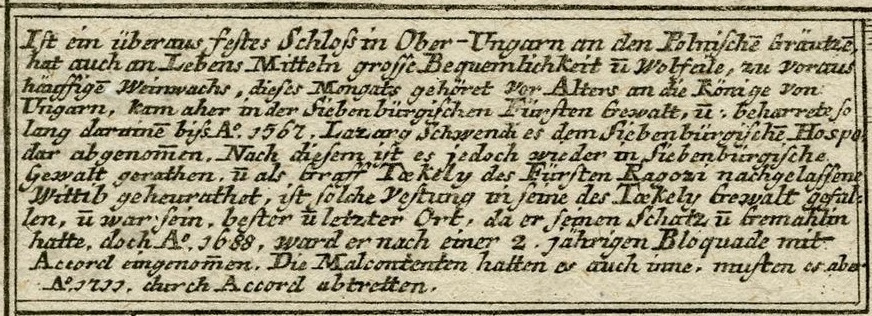 Ist ein überaus festes Schloß in Ober-Ungarn an den Polnischē Gräntzē,
hat auch an Lebens Mitteln grosse Bequemlichkeit ū Wolfeile, zu voraus
häuffigē Weinwachs, dieses Mongats gehöret vor Alters an die Könige von
Ungarn, kam aber in der Siebenbürgischen Fürsten Gewalt, ū. beharrete so
lang darinnē biß Aº. 1567. Lazarg Schwendi es dem Siebenbürgischē Hospo,
dar abgenom̄en. Nach diesem ist es jedoch wieder in Siebenbürgische
Gewalt gerathen. ū als Graff Tœkely des Fürsten Ragozi nachgelassene
Wittib geheurathet, ist solche Vestung in seine des Tœkely Gewalt gefal-
len, ū war sein, bester ū letzter Ort, da er seinen Schatz ū Gemahlin
hatte, doch Aº. 1688, ward er nach einer 2. jährigen Bloquade mit
Accord eingenom̄en. Die Malcontenten hatten es auch inne, musten es aber
Aº. 1711. durch Accord abtretten.